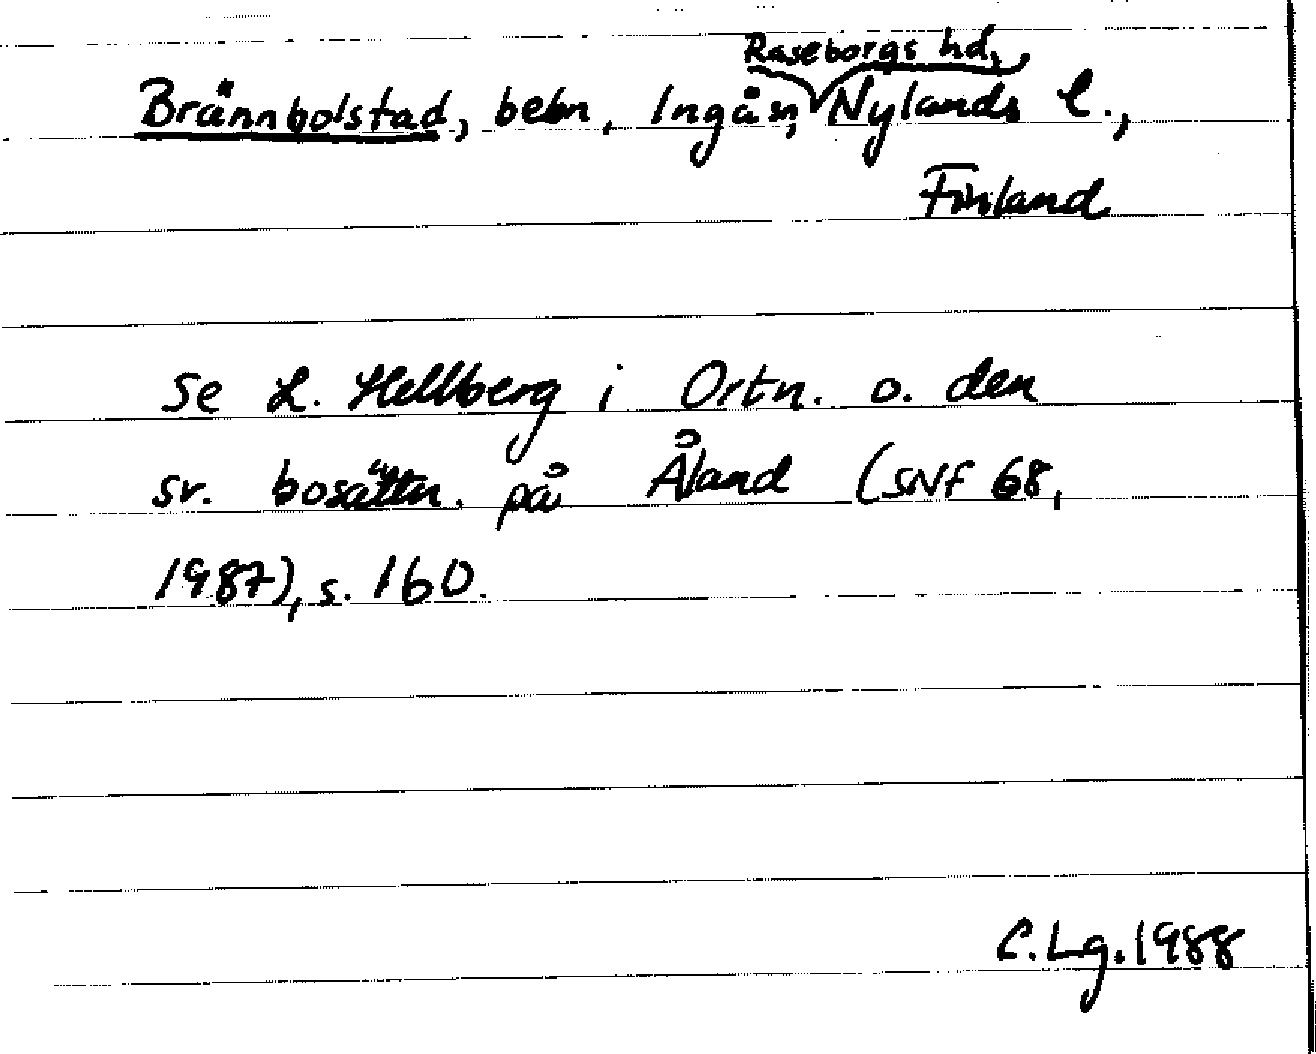 Raseborgs hd,
Brännbolstad, bebn, Ingå sn, Nylands l.,
Finland
Se L. Hellberg i Ortn. o. den
sv. bosättn. på Åland (SNF 68,
1987), s. 160.
C. Lg. 1988